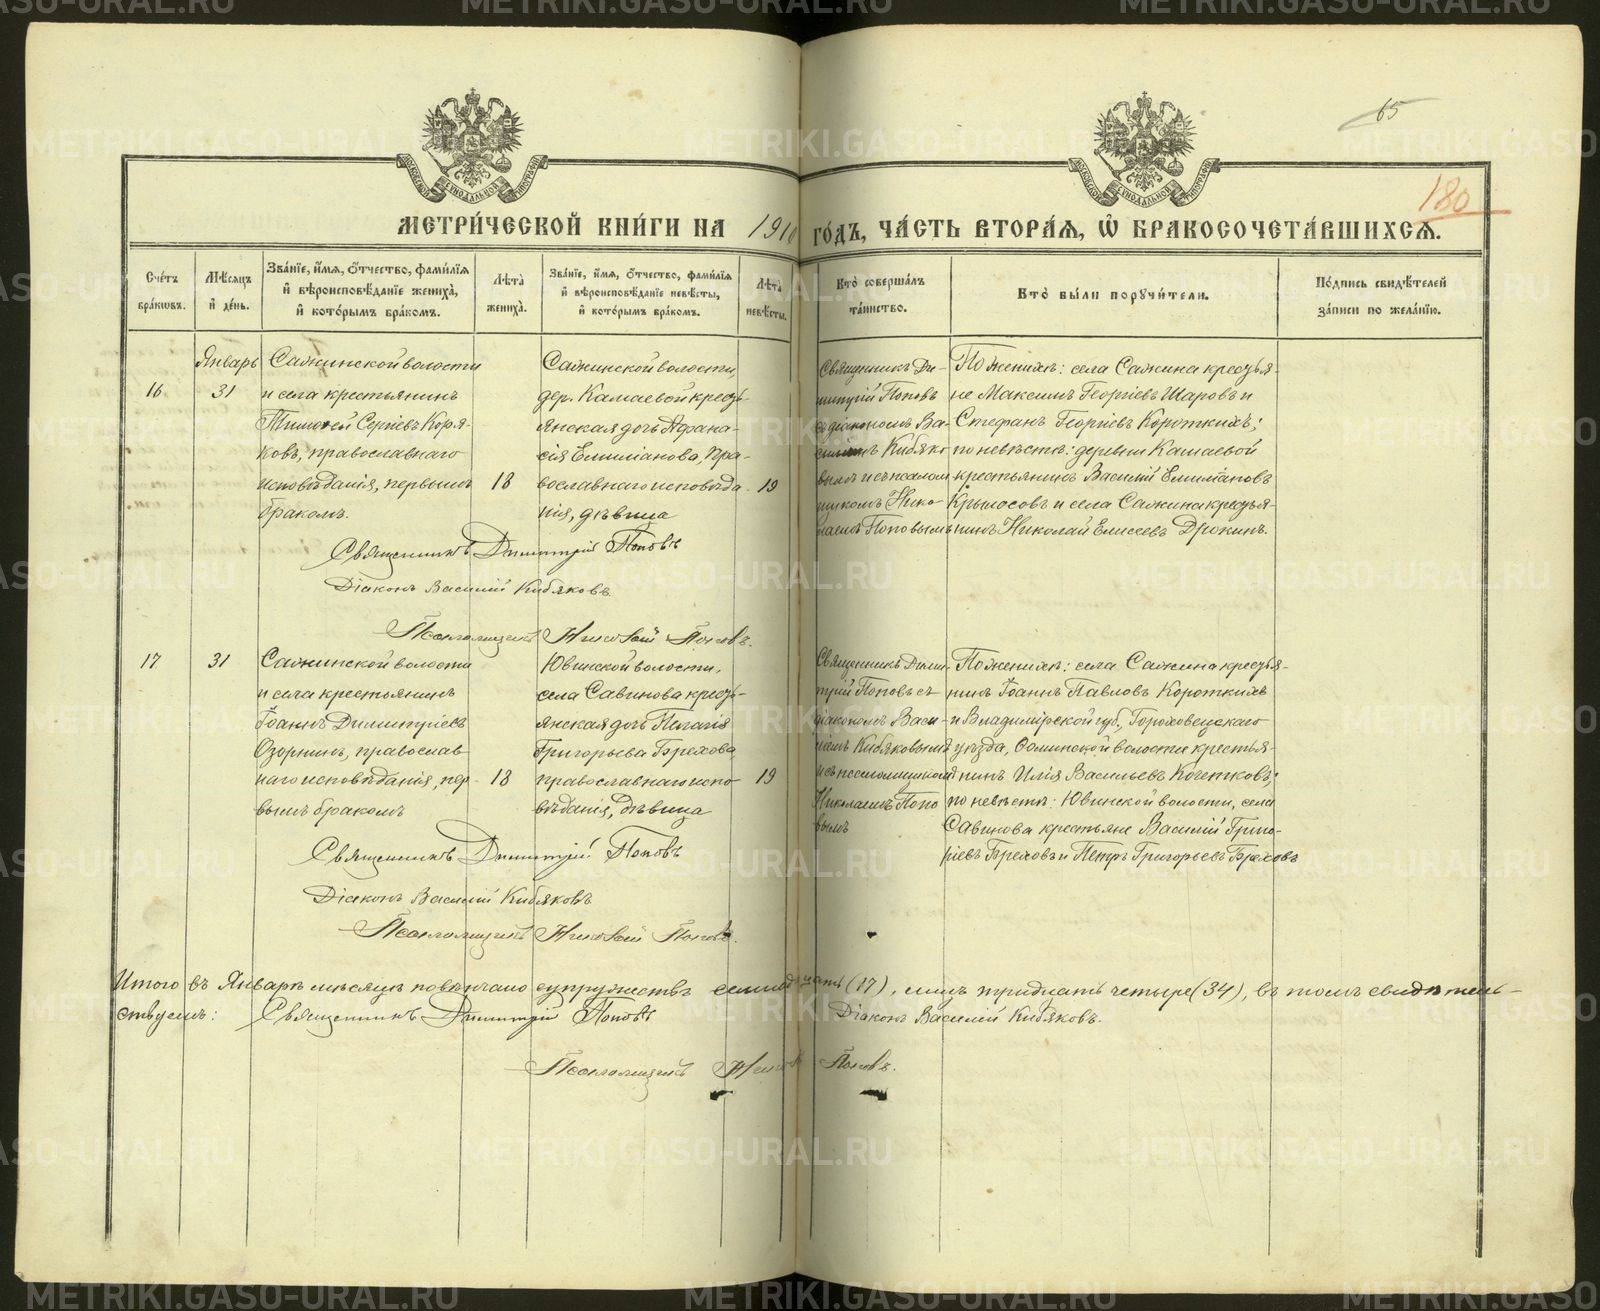 65
180
МОСКОВСКОЙ СѴНОДАЛЬНОЙ ТИПОГРАФІИ
МОСКОВСКОЙ СѴНОДАЛЬНОЙ ТИПОГРАФІИ
МЕТРИ́ЧЕСКОЙ КНИ́ГИ НА 1910 ГО́ДЪ, ЧА́СТЬ ВТОРА́Я, Ѽ БРАКОСОЧЕТА́ВШИХСЯ.
Сче́тъ
бра́ковъ.
Мѣ́сяцъ
и҆ де́нь.
Зва́нїе, и҆́мя, ѻ҆́тчество, фами́лїя
и҆ вѣроисповѣ́данїе жениха̀,
и҆ кото́рымъ бра́комъ.
Лѣ́та
жениха̀.
Зва́нїе, и҆́мя, ѻ҆́тчество, фами́лїя
и҆ вѣроисповѣ́данїе невѣ́сты,
и҆ кото́рымъ бра́комъ.
Лѣ́та
невѣ́сты.
Кто̀ соверша́лъ
та́инство.
Кто̀ бы́ли порꙋчи́тели.
По́дпись свидѣ́телей
за́писи по жела́нїю.
16
Январь
31
Сажинской волости
и села крестьянинъ
Тимофей Сергіевъ Коря-
ковъ, православнаго
исповѣданія, первымъ
бракомъ.
18
Сажинской волости,
дер. Камаевой кресть-
янская дочь Афана-
сія Емиліанова, пра-
вославнаго исповѣда-
нія, дѣвица
19
Священникъ Ди-
митрій Поповъ
съ діакономъ Ва-
силіемъ Кибяко-
вымъ и съ псалом-
щикомъ Нико-
лаемъ Поповымъ
По женихѣ: села Сажина крестья-
не Максимъ Георгіевъ Шаровъ и
Стефанъ Георгіевъ Короткихъ;
по невѣстѣ: деревни Камаевой
крестьянинъ Василій Емиліановъ
Крыласовъ и села Сажина крестья-
нинъ Николай Елисеевъ Дрокинъ.
Священникъ Димитрій Поповъ
Діаконъ Василій Кибяковъ.
Псаломщикъ Николай Поповъ.
17
31
Сажинской волости
и села крестьянинъ
Іоаннъ Димитріевъ
Озорнинъ, православ-
наго исповѣданія, пер-
вымъ бракомъ
18
Ювинской волости,
села Савинова кресть-
янская дочь Пелагія
Григорьева Брехова,
православнаго испо-
вѣданія, дѣвица
19
Священникъ Дими-
трій Поповъ съ
діакономъ Васи-
ліемъ Кибяковымъ
и съ псаломщикомъ
Николаемъ Попо-
вымъ
По женихѣ: села Сажина крестья-
нинъ Іоаннъ Павловъ Короткихъ
и Владимірской губ., Гороховецскаго
уѣзда, волости крестья-
нинъ Илія Васильевъ Кочетковъ;
по невѣстѣ: Ювинской волости, села
Савинова крестьяне Василій Григо-
ріевъ Бреховъ и Петръ Григорьевъ Бреховъ
Священникъ Димитрій Поповъ
Діаконъ Василій Кибяковъ
Псаломщикъ Николай Поповъ.
Итого въ Январѣ мѣсяцѣ повѣнчано супружествъ семнадцать (17), лицъ тридцать четыре (34), въ томъ свидѣтель-
ствуемъ: Священникъ Димитрій Поповъ Діаконъ Василій Кибяковъ.
Псаломщикъ Николай Поповъ.
METRIKI.GASO-URAL.RU